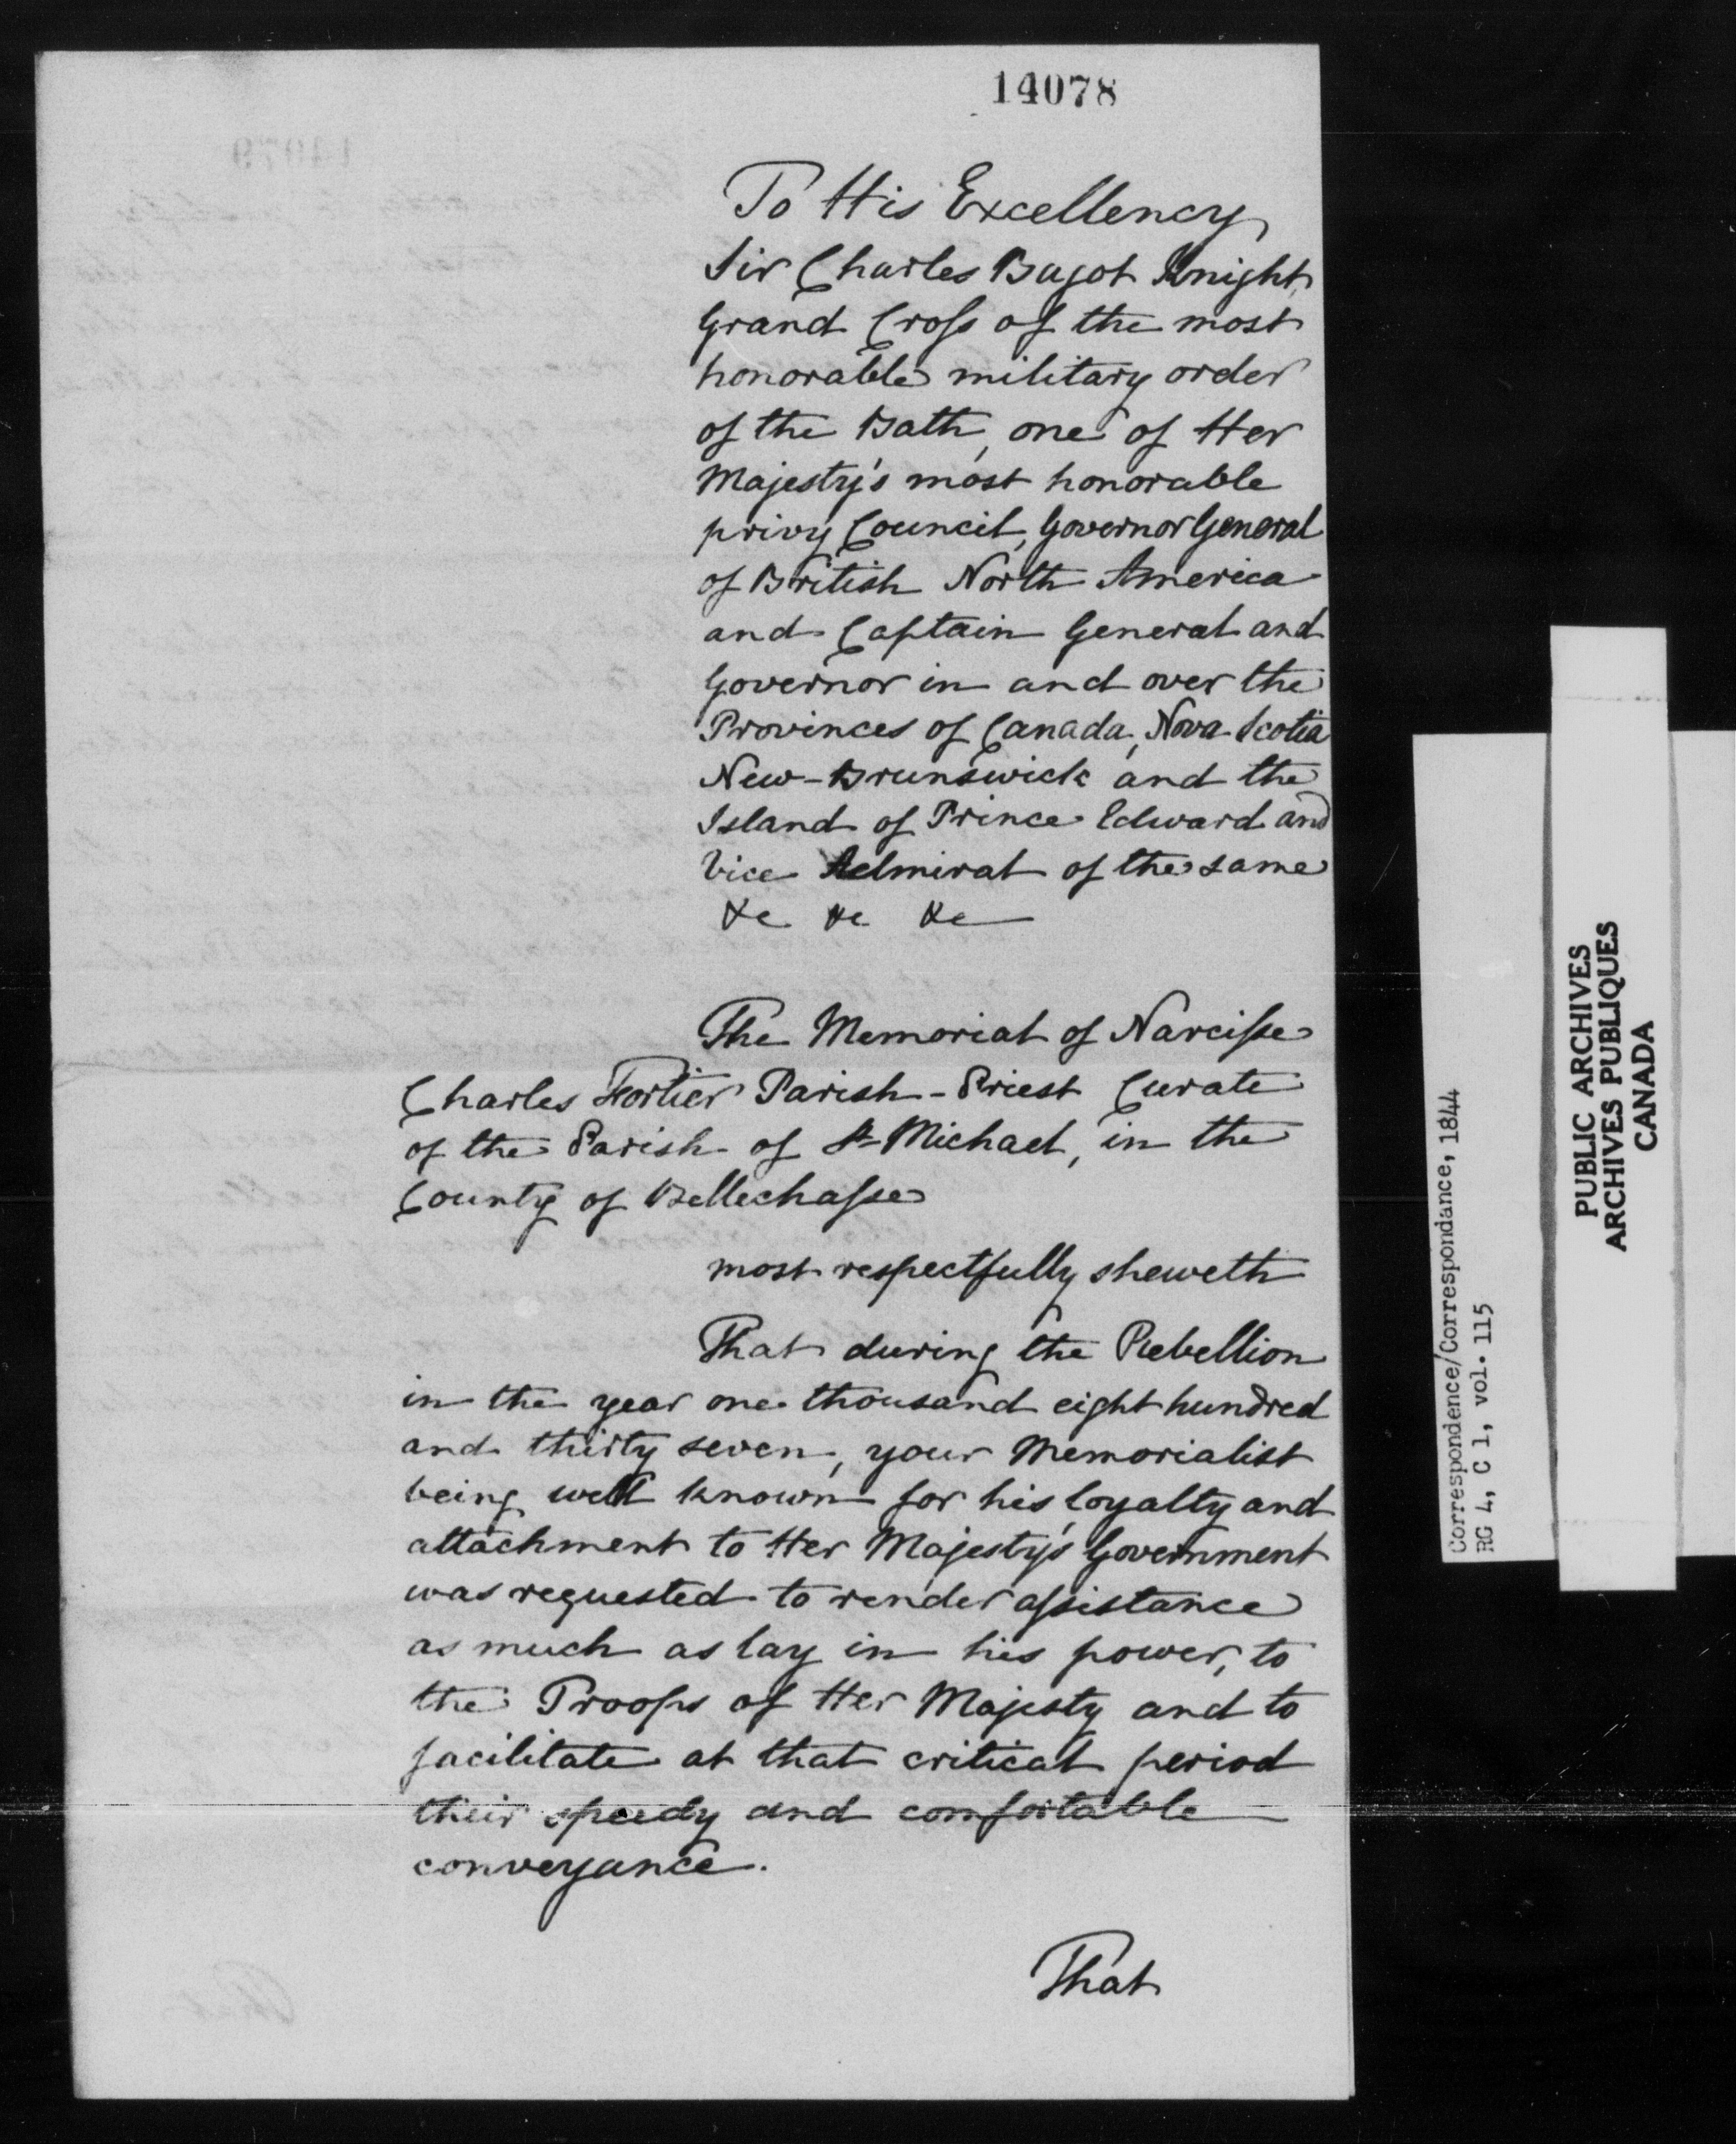 14078
To His Excellency
Sir Charles Bagot Knight
Grand Cross of the most
honorable military order
of the Bath, one of Her
Majesty's most honorable
privy Council, Governor General
of British North America
and Captain General and
Governor in and over the
Provinces of Canada, Nova Scotia
New-Brunswick and the
Island of Prince Edward and
Vice Admiral of the same
&c &c &c
The Memorial of Narcisse
Charles Fortier Parish-Priest Curate
of the Parish of St Michael, in the
County of Bellechasse
most respectfully sheweth
That during the Rebellion
in the year one thousand eight hundred
and thirty seven, your Memorialist
being well known for his loyalty and
attachment to Her Majesty's Government
was requested to render assistance
as much as lay in his power, to
the Troops of Her Majesty and to
facilitate at that critical period
their speedy and comfortable
conveyance.
That
Correspondence/Correspondance, 1844
RG 4, C 1, vol. 115
PUBLIC ARCHIVES
ARCHIVES PUBLIQUES
CANADA